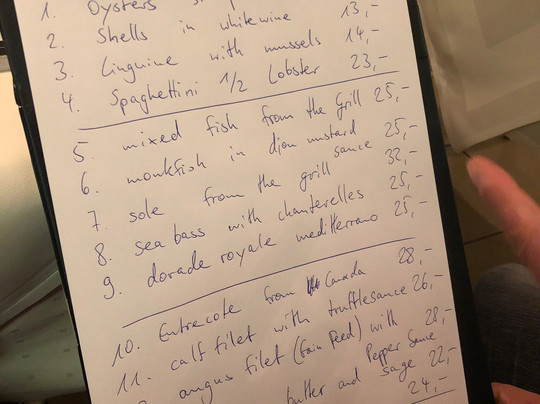 1. Oysters
2. Shells in whitewine 13,-
3. Linguine with mussels 14,-
4. Spaghettini 1/2 Lobster 23,-
5. mixed fish from the Grill 25,-
6. monkfish in dijon mustard sauce 25,-
7. sole from the grill 32,-
8. sea bass with chanterelles 25,-
9. dorade royale mediterrano 25,-
10. Entrecote from Canada 28,-
11. calf filet with trufflesauce 26,-
angus filet (Corn Feed) with 28,-
Pepper Sauce
butter and sage 22,-
24,-